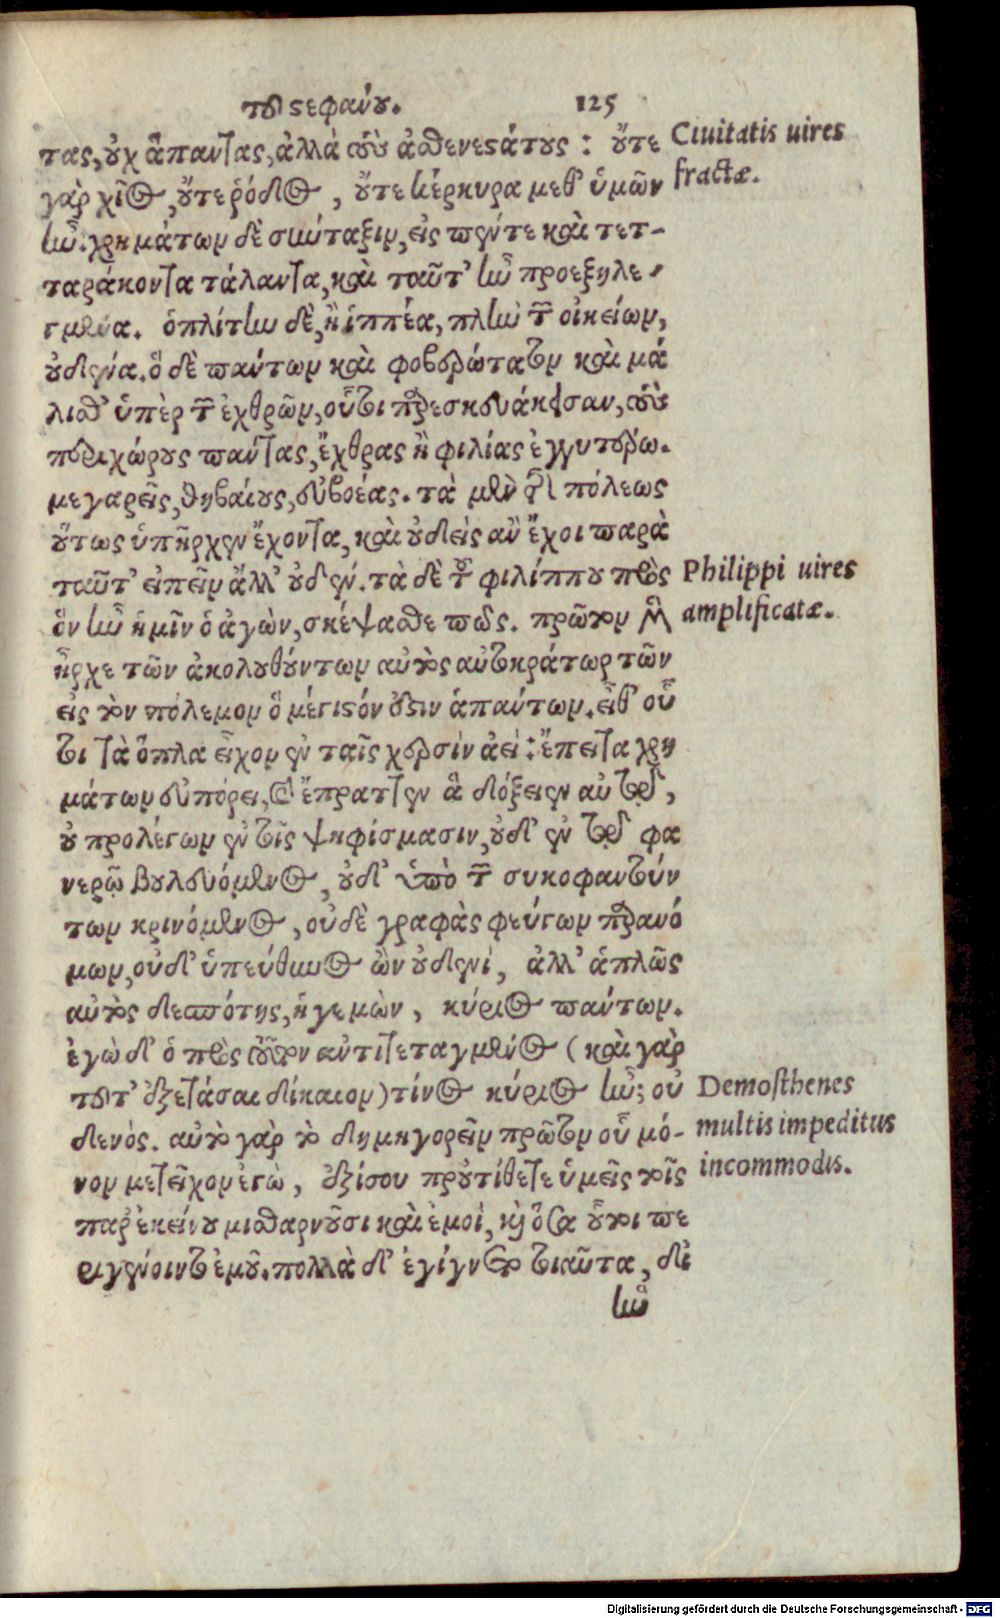 τοῦ στεφάνου. 125
τας, οὐχ ἅπαντας, ἀλλὰ τοὺς ἀσθενεστάτους : οὔτε
γὰρ χῖος, οὔτε ῥόδιος, οὔτε κέρκυρα μεθ' ὑμῶν
ἦν. χρημάτων δὲ σύνταξιν, εἰς πέντε καὶ τετ-
ταράκοντα τάλαντα, καὶ ταῦτ' ἦν προεξηλε-
γμένα. ὁπλίτην δὲ, ἢ ἱππέα, πλὴν τῶν οἰκείων,
οὐδένα. ὃ δὲ πάντων καὶ φοβερώτατον καὶ μά
λισθ' ὑπὲρ τῶν ἐχθρῶν, οὗτοι παρεσκευάκεσαν, τοὺς
περιχώρους πάντας, ἔχθρας ἢ φιλίας ἐγγυτέρω.
μεγαρεῖς, θηβαίους, εὐβοέας. τὰ μὲν τῆς πόλεως
οὕτως ὑπῆρχεν ἔχοντα, καὶ οὐδεὶς ἂν ἔχοι παρὰ
ταῦτ' εἰπεῖν ἄλλ' οὐδέν. τὰ δὲ τοῦ φιλίππου πρὸς
ὃν ἦν ἡμῖν ὁ ἀγὼν, σκέψασθε πῶς. πρῶτον μὲν
ἦρχε τῶν ἀκολουθούντων αὐτὸς αὐτοκράτωρ τῶν
εἰς τὸν πόλεμον ὃ μέγιστόν ἐστιν ἁπάντων. εἶθ' οὗ
τοι τὰ ὅπλα εἶχον ἐν ταῖς χερσὶν ἀεί : ἔπειτα χρη
μάτων εὐπόρει, καὶ ἔπραττεν ἃ δόξειεν αὐτῷ,
οὐ προλέγων ἐν τοῖς ψηφίσμασιν, οὐδ' ἐν τῷ φα
νερῷ βουλευόμενος, οὐδ' ὑπὸ τῶν συκοφαντούν
των κρινόμενος, οὐδὲ γραφὰς φεύγων παρανό
μων, οὐδ' ὑπεύθυνος ὢν οὐδενί, ἀλλ' ἁπλῶς
αὐτὸς δεσπότης, ἡγεμὼν, κύριος πάντων.
ἐγὼ δ' ὁ πρὸς τοῦτον ἀντιτεταγμένος (καὶ γὰρ
τοῦτ' ἐξετάσαι δίκαιον) τίνος κύριος ἦν; οὐ
δενός. αὐτὸ γὰρ τὸ δημηγορεῖν πρῶτον οὗ μό-
νον μετεῖχον ἐγὼ, ἐξίσου προὐτίθετε ὑμεῖς τοῖς
παρ' ἐκείνου μισθαρνοῦσι καὶ ἐμοὶ, καὶ ὅσα οὗτοι πε
ριγένοιντο ἐμοῦ. πολλὰ δ' ἐγίγνετο τοιαῦτα, δι'
ἣν
Ciuitatis uires
fractæ.
Philippi uires
amplificatæ.
Demosthenes
multis impeditus
incommodis.
Digitalisierung gefördert durch die Deutsche Forschungsgemeinschaft - DFG